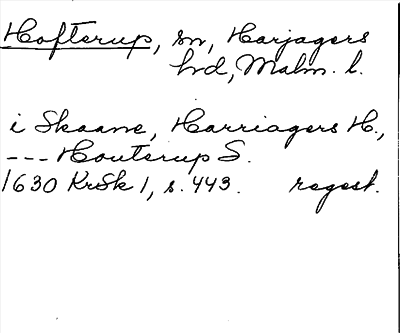 Hofterup, sn, Harjagers
hrd, Malm. l.
i Skaane, Harriagers H.,
--- Houterup S.
1630 KrSk 1, s. 443. regest.